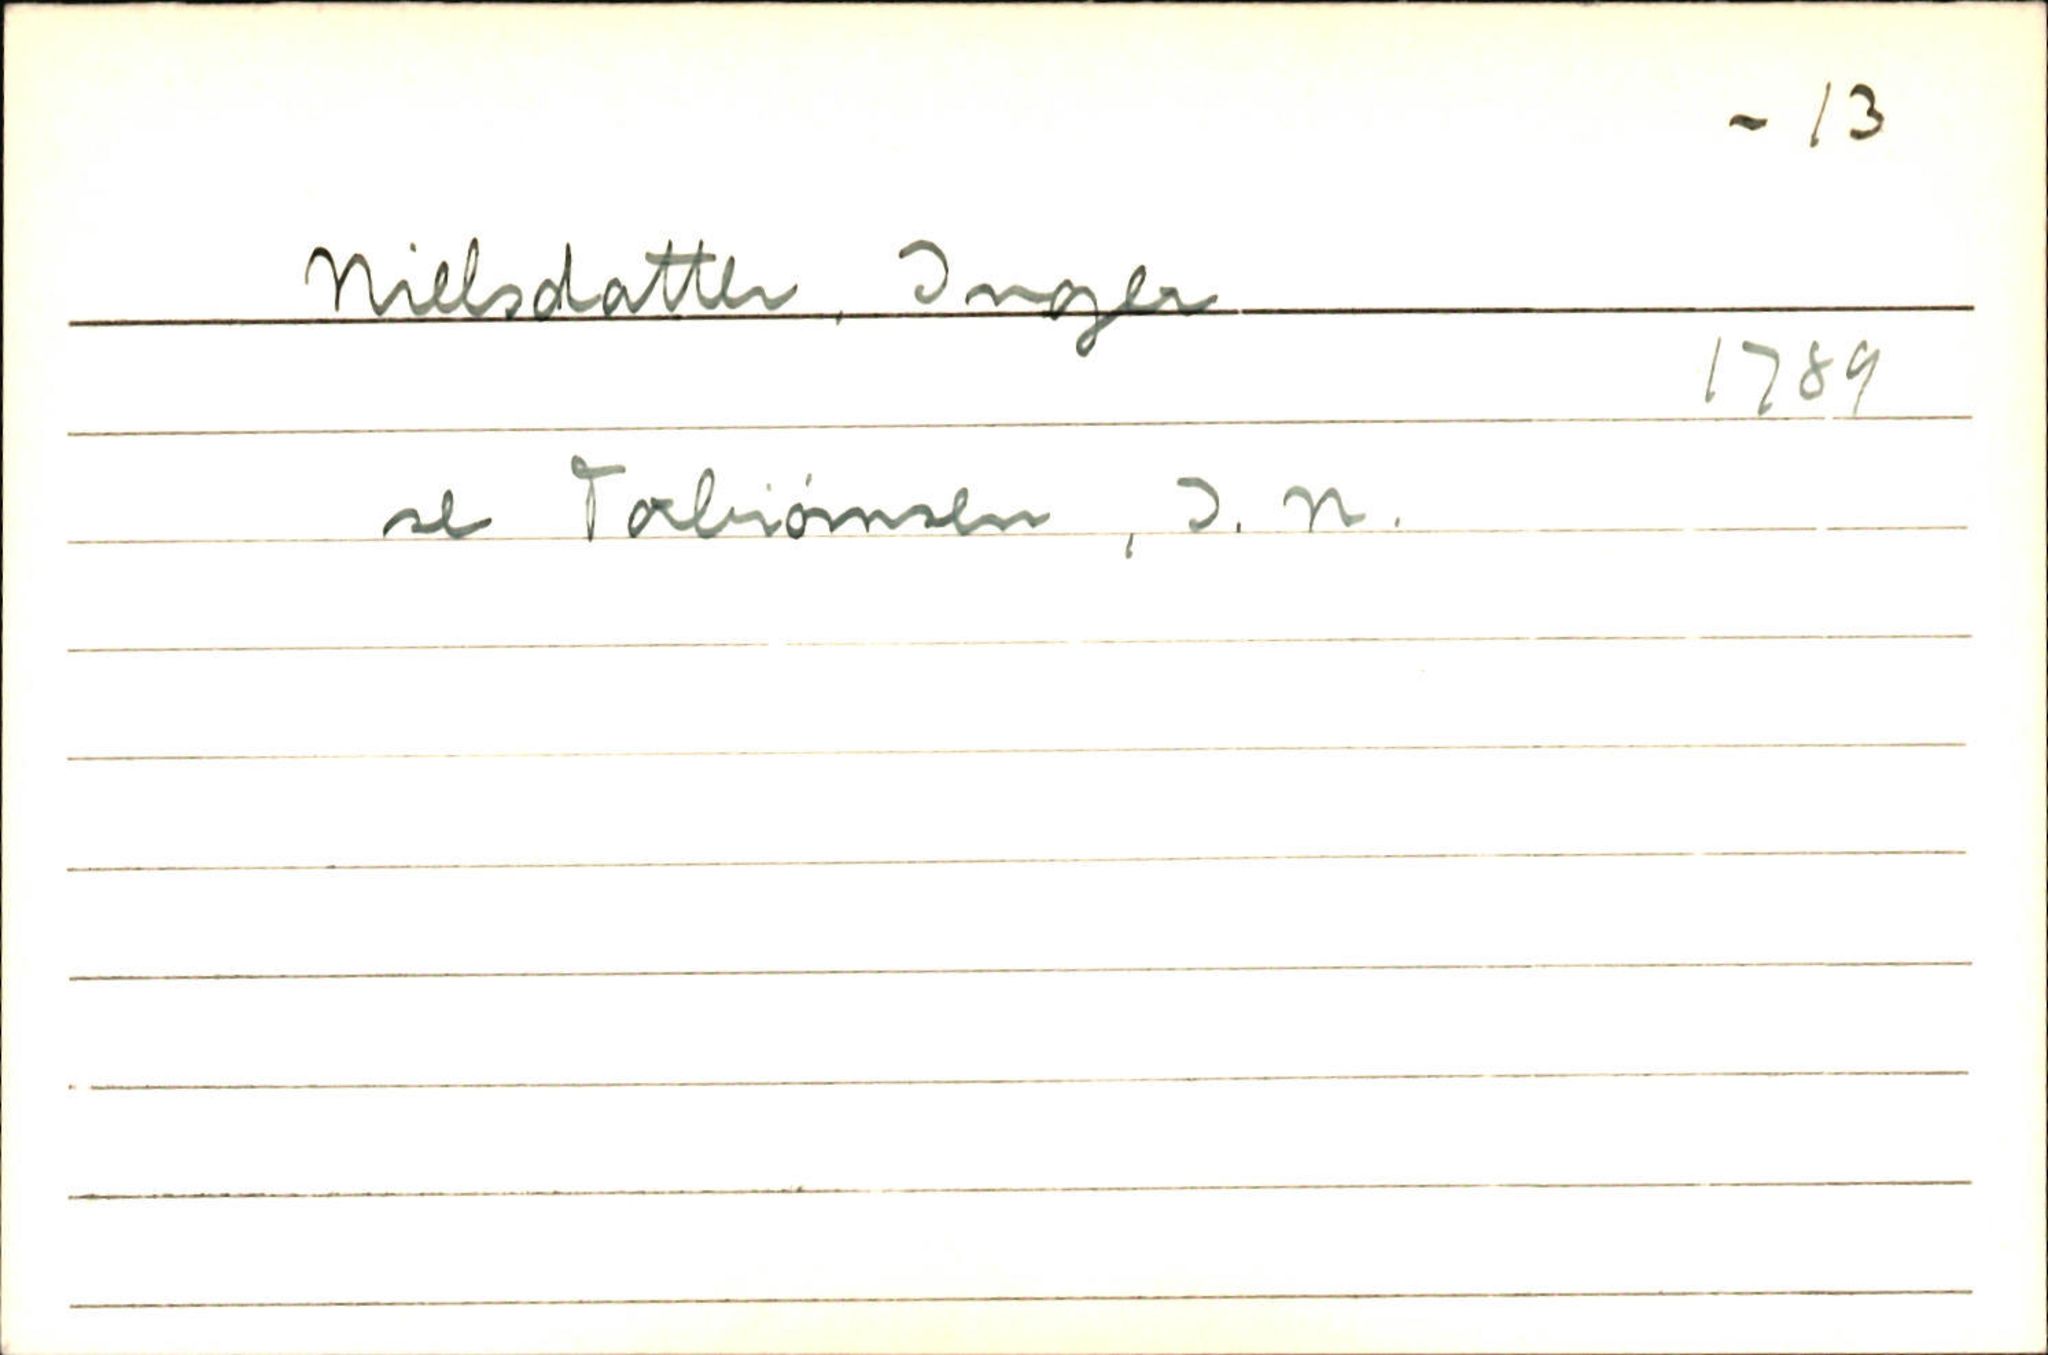 - 13
Nielsdatter, Inger
1789
se Torbiörnsen, I. N.